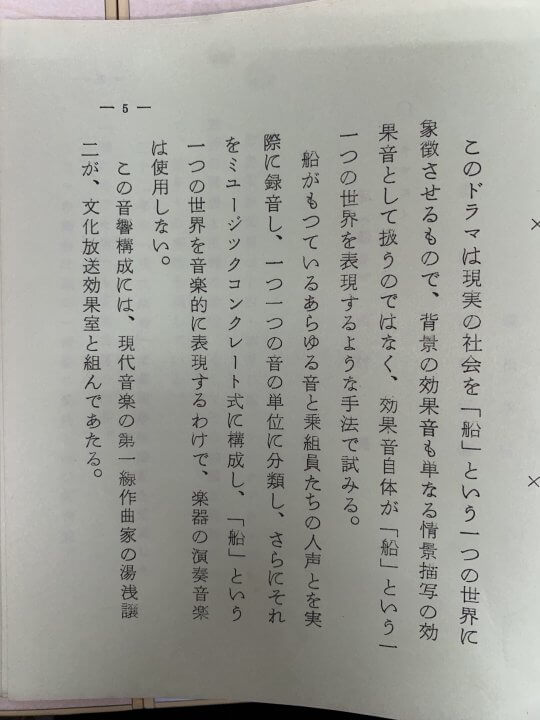 このドラマは現実の社会を「船」という一つの世界に
象徴させるもので、背景の効果音も単なる情景描写の効
果音として扱うのではなく、効果音自体が「船」という一
一つの世界を表現するような手法で試みる。
船がもつているあらゆる音と乗組員たちの人声とを実
際に録音し、一つ一つの音の単位に分類し、さらにそれ
をミユージツクコンクレート式に構成し、「船」という
一つの世界を音楽的に表現するわけで、楽器の演奏音楽
は使用しない。
この音響構成には、現代音楽の第一線作曲家の湯浅譲
二が、文化放送効果室と組んであたる。
— 5 —